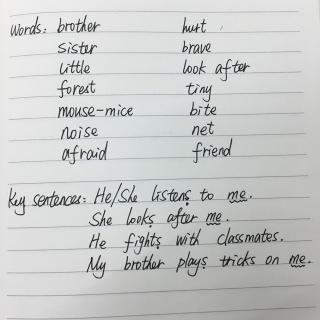 Words: brother hurt
sister brave
little look after
forest tiny
mouse-mice bite
noise net
afraid friend
Key sentences: He/She listens to me.
She looks after me.
He fights with classmates.
My brother plays tricks on me.